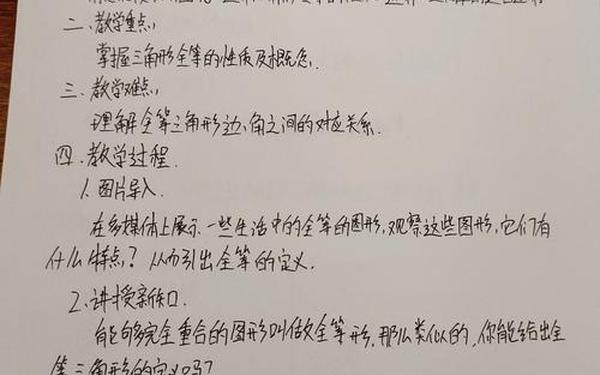 二、教学重点:
掌握三角形全等的性质及概念.
三、教学难点:
理解全等三角形边、角之间的对应关系.
四、教学过程.
1.图片导入.
在多媒体上展示一些生活中的全等的图形,观察这些图形,它们有
什么特点?从而引出全等的定义.
2.讲授新知.
能够完全重合的图形叫做全等形,那么类似的,你能给出全
等三角形的定义吗?